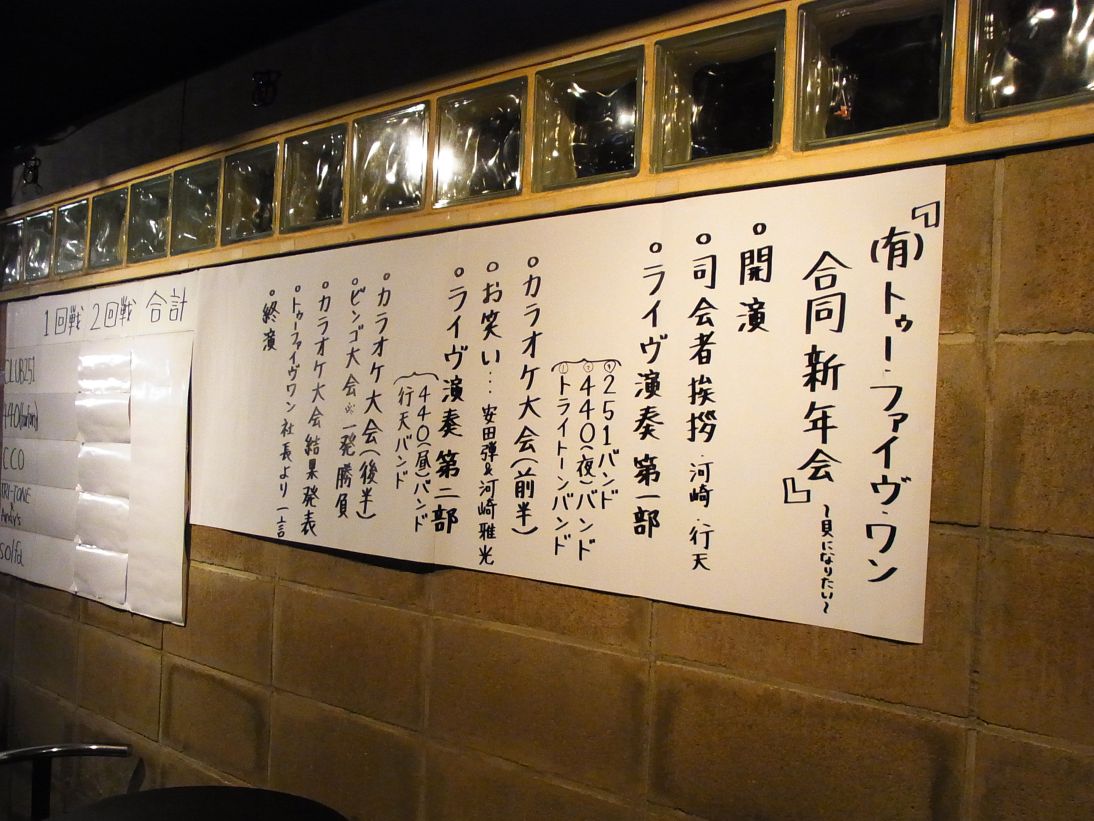 『(有)トゥー・ファイヴ・ワン
合同新年会』 ~貝になりたい~
開演
司会者挨拶・河崎・行天
ライヴ演奏 第一部
251バンド
440(夜)バンド
トライトーンバンド
カラオケ大会(前半)
お笑い…安田弾&河崎雅光
ライヴ演奏 第二部
440(昼)バンド
行天バンド
カラオケ大会(後半)
ビンゴ大会 一発勝負
カラオケ大会結果発表
トゥーファイヴワン社長より一言
終演
1回戦 2回戦 合計
CLUB251
CCO
TRI-TONE
solfa